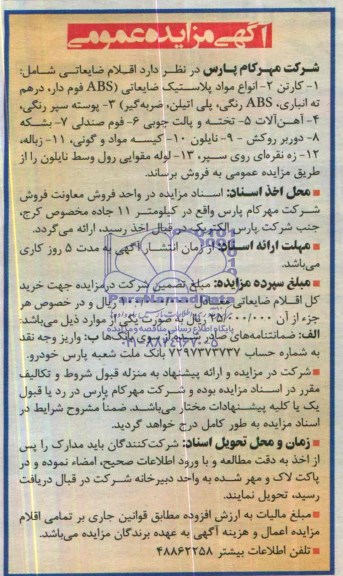 آگهی مزایده عمومی
شرکت مهرکام پارس در نظر دارد اقلام ضایعاتی شامل:
۱- کارتن ۲- انواع مواد پلاستیک ضایعاتی (ABS فوم دار، درهم
ته انباری، ABS رنگی، پلی اتیلن، ضربه‌گیر) ۳- پوسته سپر رنگی،
۴- آهن‌آلات ۵- تخته و پالت چوبی ۶- فوم صندلی ۷- بشکه
۸- دوربر روکش ۹- نایلون ۱۰- کیسه مواد و گونی، ۱۱- زباله،
۱۲- زه نقره‌ای روی سپر، ۱۳- لوله مقوایی رول وسط نایلون را از
طریق مزایده عمومی به فروش برساند.
▪ محل اخذ اسناد: اسناد مزایده در واحد فروش معاونت فروش
شرکت مهرکام پارس واقع در کیلومتر ۱۱ جاده مخصوص کرج،
جنب شرکت پارس الکتریک در قبال اخذ رسید، ارائه می‌گردد.
▪ مهلت ارائه اسناد: از زمان انتشار آگهی به مدت ۵ روز کاری
می‌باشد.
▪ مبلغ سپرده مزایده: مبلغ تضمین شرکت درمزایده جهت خرید
کل اقلام ضایعاتی ریال و در خصوص هر
جزء از آن ریال به صورت یکی از موارد ذیل می‌باشد:
الف: ضمانتنامه‌های صادر شده از سوی بانک‌ها ب: واریز وجه نقد
به شماره حساب ۷۲۹۷۳۷۳۷۳۷ بانک ملت شعبه پارس خودرو.
▪ شرکت در مزایده و ارائه پیشنهاد به منزله قبول شروط و تکالیف
مقرر در اسناد مزایده بوده و شرکت مهرکام پارس در رد یا قبول
یک یا کلیه پیشنهادات مختار می‌باشد. ضمنا مشروح شرایط در
اسناد مزایده به طور کامل درج خواهد گردید.
▪ زمان و محل تحویل اسناد: شرکت‌کنندگان باید مدارک را پس
از اخذ به دقت مطالعه و با ورود اطلاعات صحیح، امضاء نموده و در
پاکت لاک و مهر شده به واحد دبیرخانه شرکت در قبال دریافت
رسید، تحویل نمایند.
▪ مبلغ مالیات به ارزش افزوده مطابق قوانین جاری بر تمامی اقلام
مزایده اعمال و هزینه آگهی به عهده برندگان مزایده می‌باشد.
▪ تلفن اطلاعات بیشتر ۴۸۸۶۲۲۵۸